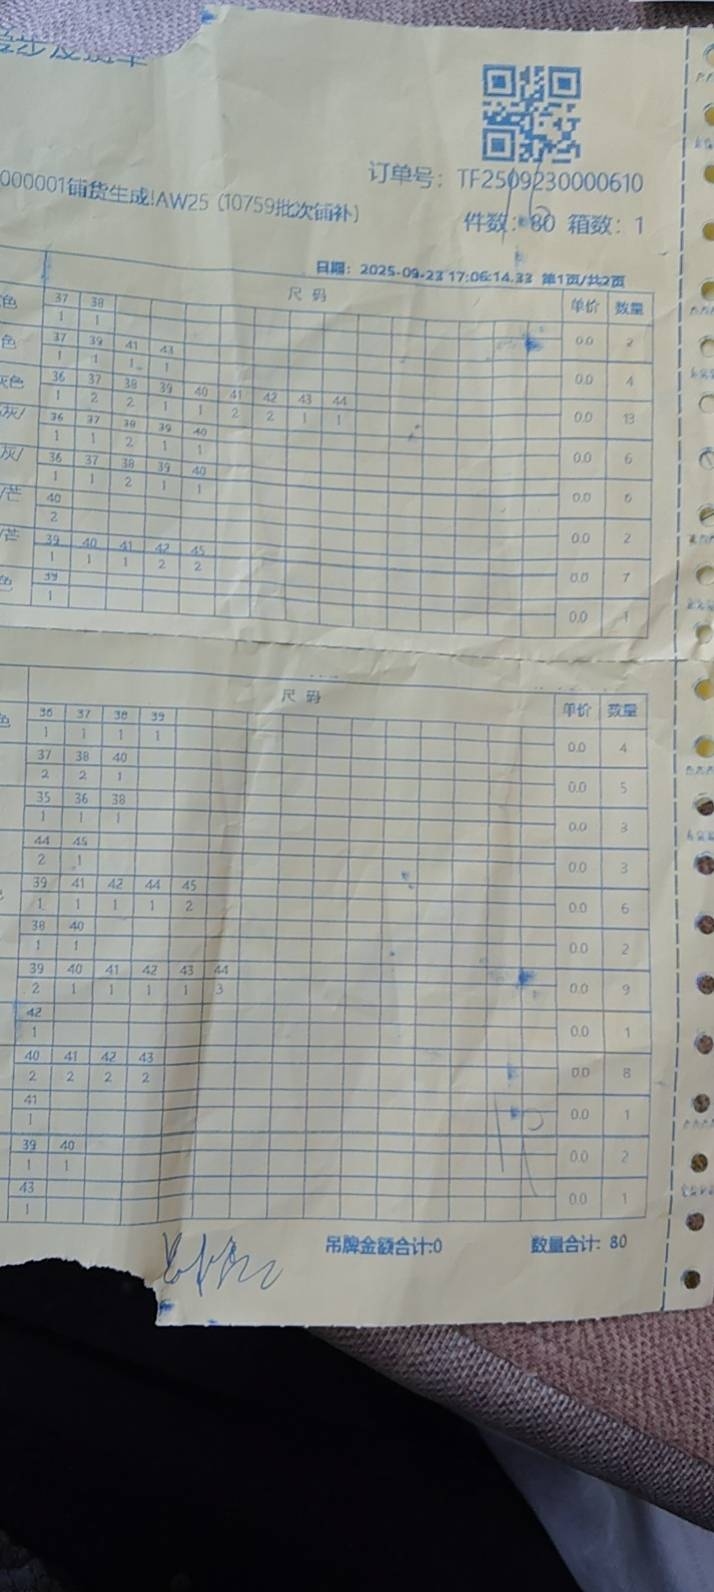 订单号：TF2509230000610
000001铺货生成!AW25 (10759批次铺补)
件数：80 箱数：1
日期：2025-09-23 17:06:14.33 第1页/共2页
尺 码 单价 数量
色 37 38
1 1 0.0 2
色 37 39 41 43
1 1 1 1 0.0 4
灰色 36 37 38 39 40 41 42 43 44
1 2 2 1 1 2 2 1 1 0.0 13
灰/ 36 37 38 39 40
1 1 2 1 1 0.0 6
灰/ 36 37 38 39 40
1 1 2 1 1 0.0 6
/芒 40
2 0.0 2
/芒 39 40 41 42 45
1 1 1 2 2 0.0 7
色 39
1 0.0 1
尺 码 单价 数量
色 36 37 38 39
1 1 1 1 0.0 4
37 38 40
2 2 1 0.0 5
35 36 38
1 1 1 0.0 3
44 45
2 1 0.0 3
39 41 42 44 45
1 1 1 1 2 0.0 6
38 40
1 1 0.0 2
39 40 41 42 43 44
2 1 1 1 1 3 0.0 9
42
1 0.0 1
40 41 42 43
2 2 2 2 0.0 8
41
1 0.0 1
39 40
1 1 0.0 2
43
1 0.0 1
吊牌金额合计:0 数量合计: 80